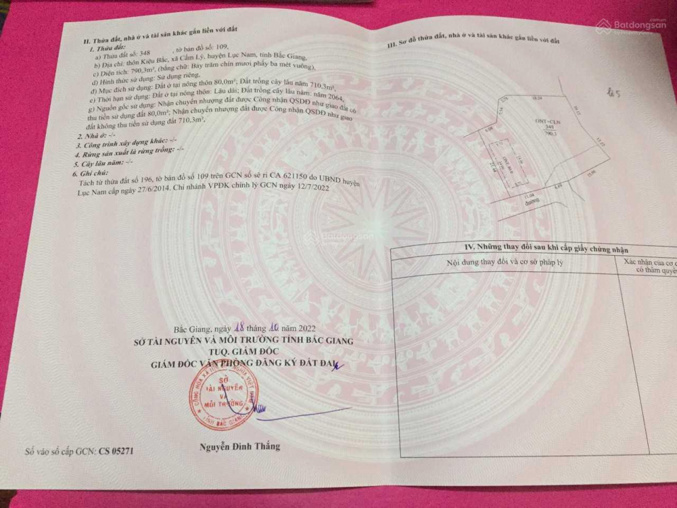 Batdongsan
II. Thửa đất, nhà ở và tài sản khác gắn liền với đất
1. Thửa đất:
a) Thửa đất số: 348 , tờ bản đồ số: 109,
b) Địa chỉ: thôn Kiêu Bắc, xã Cẩm Lý, huyện Lục Nam, tỉnh Bắc Giang.
c) Diện tích: 790,3m², (bằng chữ: Bảy trăm chín mươi phẩy ba mét vuông).
d) Hình thức sử dụng: Sử dụng riêng,
đ) Mục đích sử dụng: Đất ở tại nông thôn 80,0m²; Đất trồng cây lâu năm 710,3m²,
e) Thời hạn sử dụng: Đất ở tại nông thôn: Lâu dài; Đất trồng cây lâu năm: năm 2064,
g) Nguồn gốc sử dụng: Nhận chuyển nhượng đất được Công nhận QSDĐ như giao đất có
thu tiền sử dụng đất 80,0m²; Nhận chuyển nhượng đất được Công nhận QSDĐ như giao
đất không thu tiền sử dụng đất 710,3m².
2. Nhà ở: -/-
3. Công trình xây dựng khác: -/-
4. Rừng sản xuất là rừng trồng: -/-
5. Cây lâu năm: -/-
6. Ghi chú:
Tách từ thửa đất số 196, tờ bản đồ số 109 trên GCN số sê ri CA 621150 do UBND huyện
Lục Nam cấp ngày 27/6/2014. Chi nhánh VPĐK chỉnh lý GCN ngày 12/7/2022
Bắc Giang, ngày 18 tháng 10 năm 2022
SỞ TÀI NGUYÊN VÀ MÔI TRƯỜNG TỈNH BẮC GIANG
TUQ. GIÁM ĐỐC
GIÁM ĐỐC VĂN PHÒNG ĐĂNG KÝ ĐẤT ĐAI
SỞ
TÀI NGUYÊN
VÀ
MÔI TRƯỜNG
Nguyễn Đình Thắng
Số vào sổ cấp GCN: CS 05271
III. Sơ đồ thửa đất, nhà ở và tài sản khác gắn liền với đất
ONT+CLN
348
790,3
IV. Những thay đổi sau khi cấp giấy chứng nhận
Nội dung thay đổi và cơ sở pháp lý
Xác nhận của cơ
có thẩm quyề